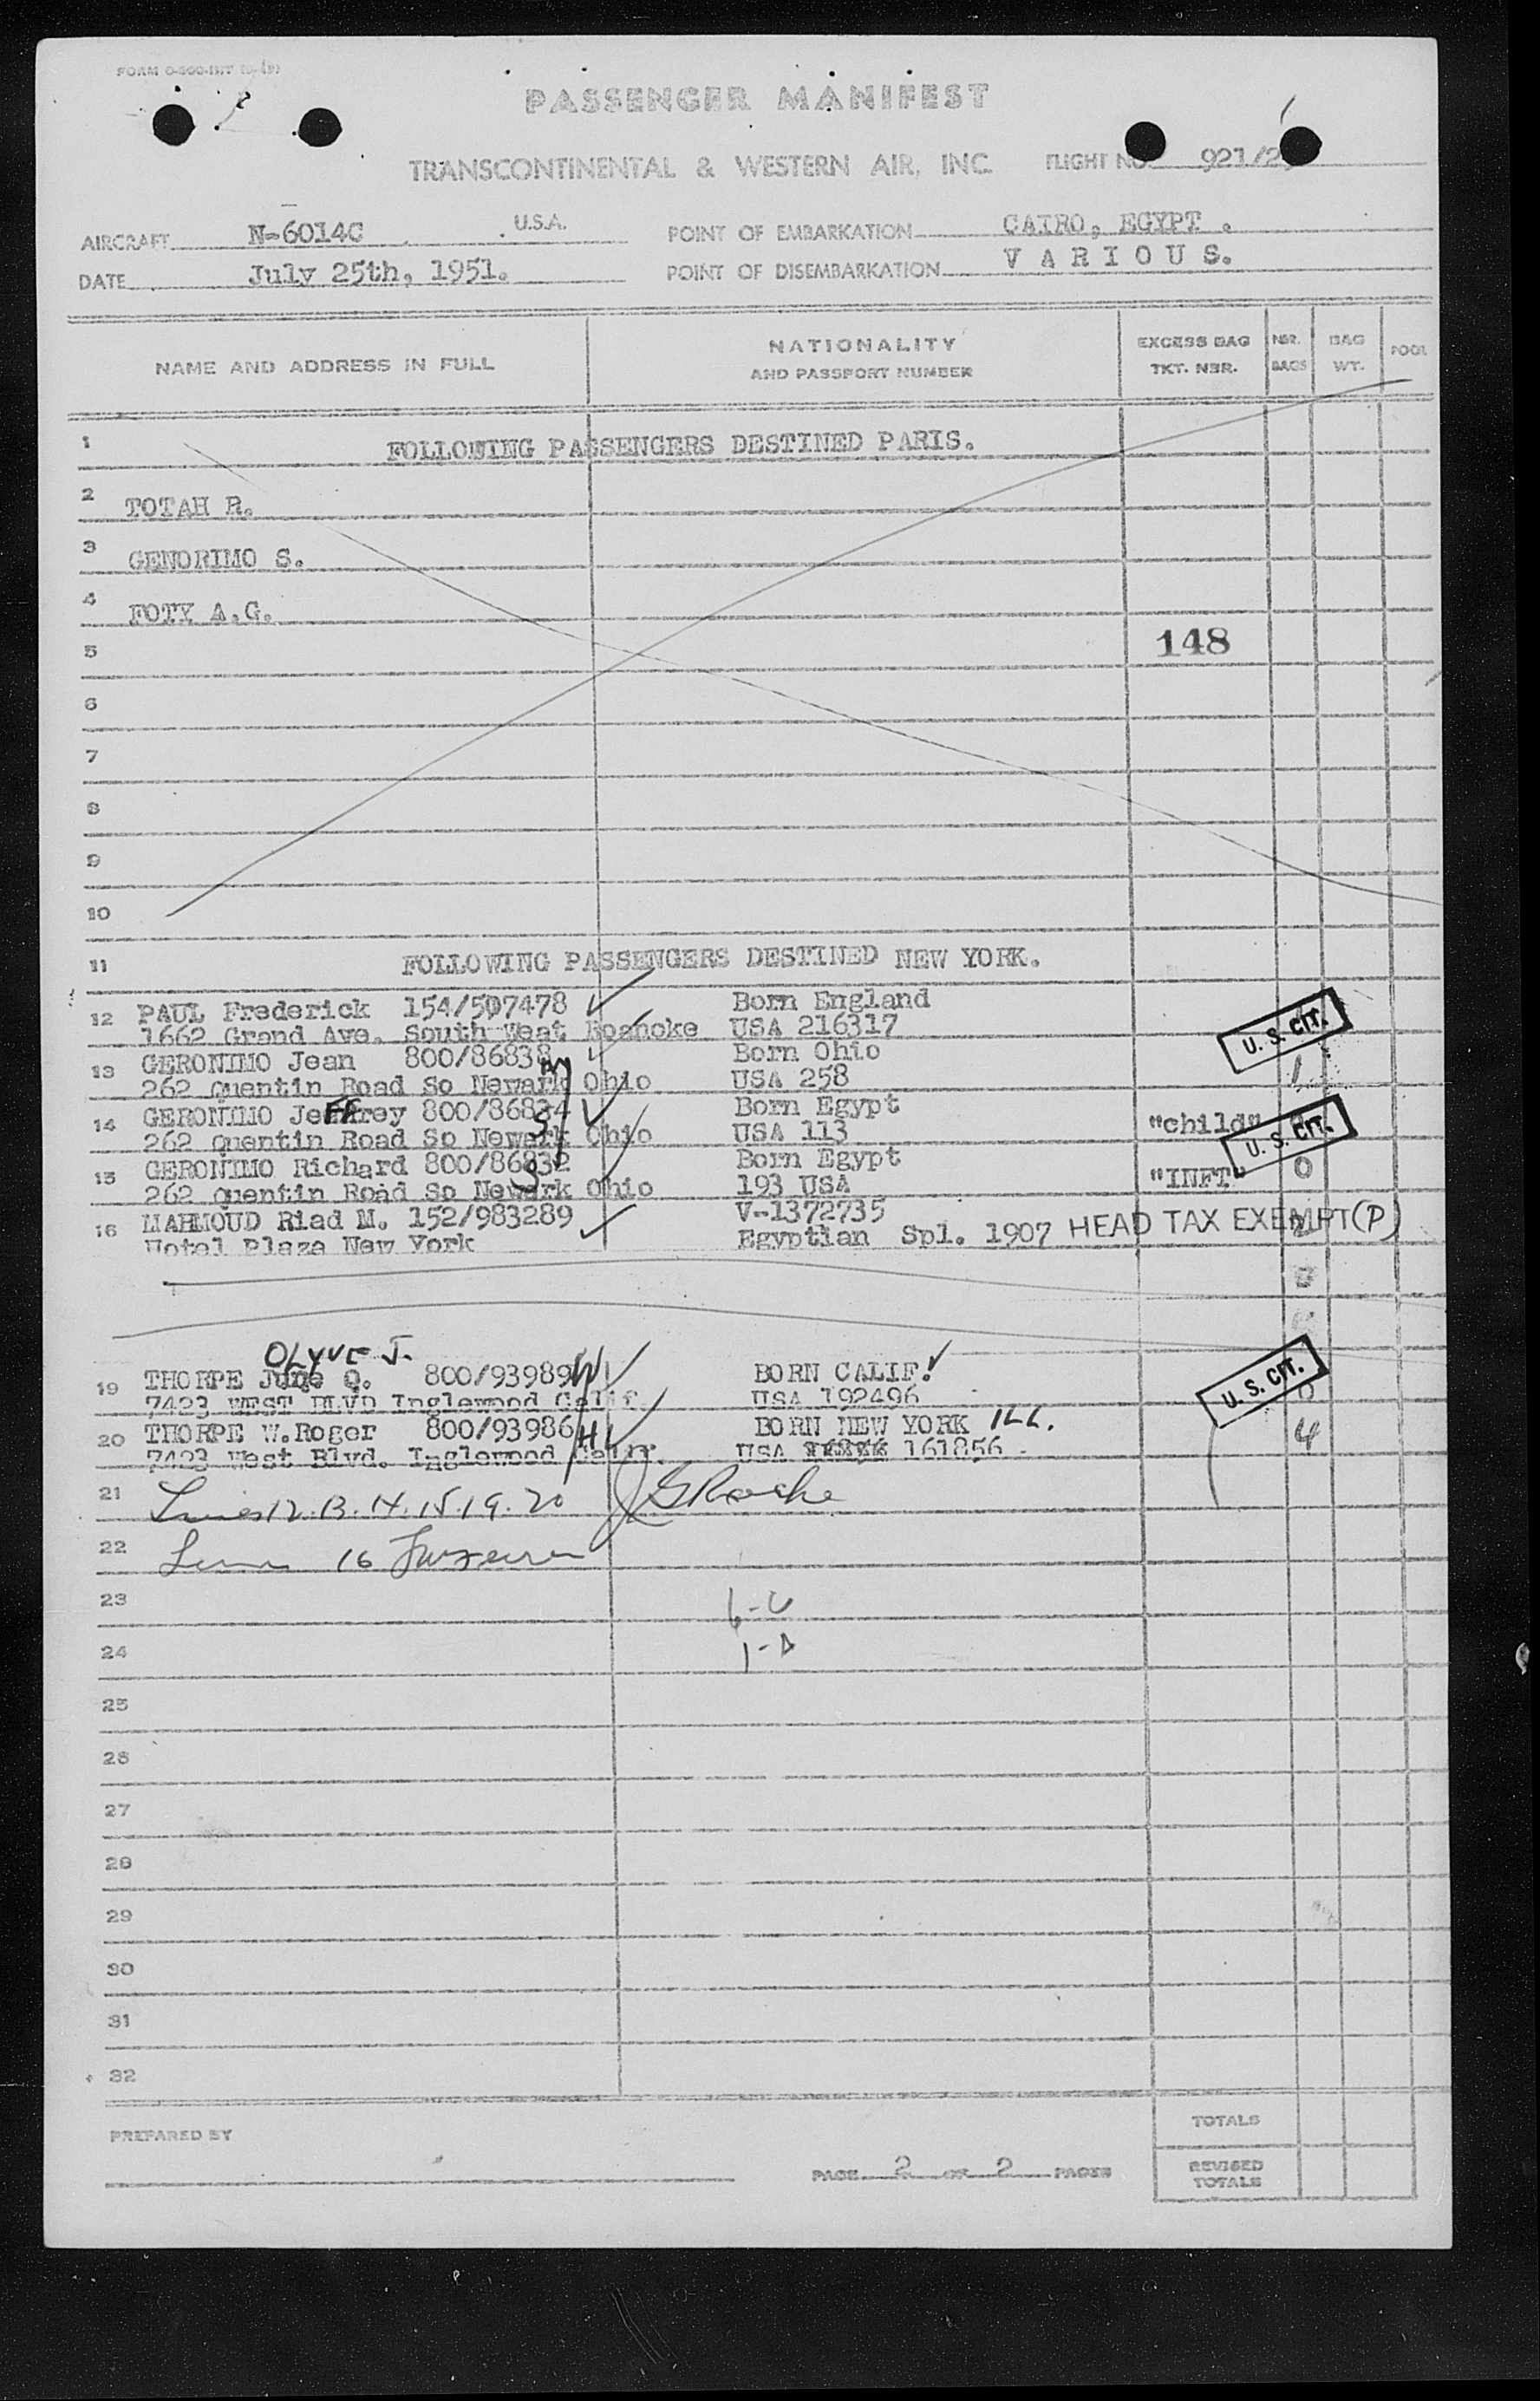 PASSENGER MANIFEST
TRANSCONTINENTAL & WESTERN AIR, INC. FLIGHT NO. 921/2
AIRCRAFT N-6014C U.S.A. POINT OF EMBARKATION CAIRO, EGYPT .
DATE July 25th, 1951. POINT OF DISEMBARKATION V A R I O U S.
NAME AND ADDRESS IN FULL NATIONALITY AND PASSPORT NUMBER EXCESS BAG TKT. NBR. NBR. BAGS BAG WT. POOL
1 FOLLOWING PASSENGERS DESTINED PARIS.
2 TOTAH R.
3 GENORIMO S.
4 FOTY A.G.
5 148
6
7
8
9
10
11 FOLLOWING PASSENGERS DESTINED NEW YORK.
12 PAUL Frederick 154/507478 Born England
1662 Grand Ave. South West Roanoke USA 216317 U. S. CIT.
13 GERONIMO Jean 800/86838 Born Ohio
262 Quentin Road So Newark Ohio USA 258 1
14 GERONIMO Jeffrey 800/86834 Born Egypt
262 Quentin Road So Newark Ohio USA 113 "child" U. S. CIT.
15 GERONIMO Richard 800/86832 Born Egypt
262 Quentin Road So Newark Ohio 193 USA "INFT" 0
16 MAHMOUD Riad M. 152/983289 V-1372735
Hotel Plaza New York Egyptian Spl. 1907 HEAD TAX EXEMPT (P)
OLYVE J.
19 THORPE June O. 800/93989 BORN CALIF.
7423 WEST BLVD Inglewood Calif. USA 192496 U. S. CIT. 0
20 THORPE W.Roger 800/93986 BORN NEW YORK ILL. 4
7423 West Blvd. Inglewood Calif. USA 161856
21 Lines 12. 13. 14. 15. 19. 20 Roche
22 16
23 6-C
24 1-A
25
26
27
28
29
30
31
32
TOTALS
PREPARED BY
PAGE 2 OF 2 PAGES REVISED TOTALS